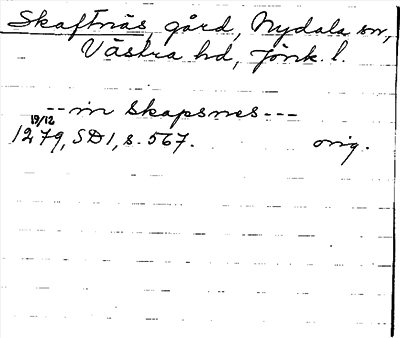 Skaftnäs, gård, Nydala sn,
Västra hd, Jönk. l.
--- in Skapsnes ---
19/12
1279, SD1, s. 567. orig.